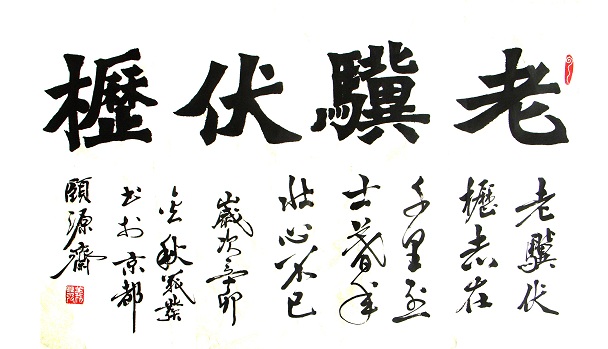 老驥伏櫪
老驥伏
櫪志在
千里烈
士暮年
壯心不已
歲次辛卯
金秋
书於京都
頤源齋